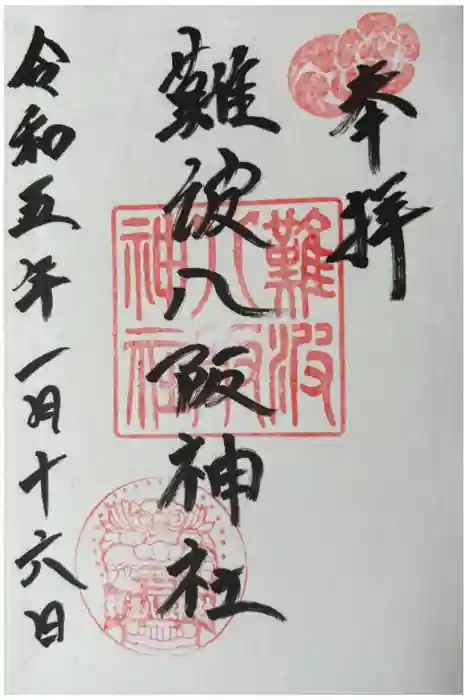 奉拝
難波八阪神社
難波
八阪
神社
令和五年一月十六日